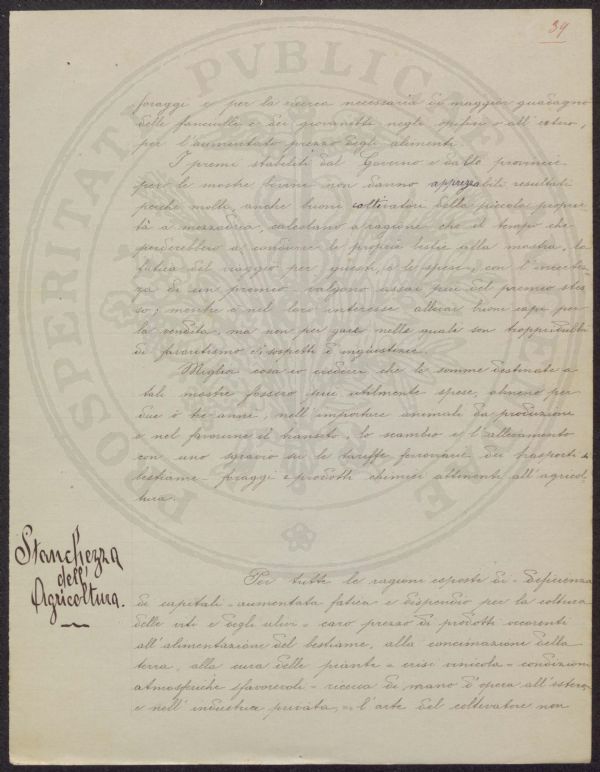 39
foraggi e per la ricerca necessaria di maggior guadagno
delle fanciulle e dei giovanetti negli opifici o all'estero,
per l'aumentato prezzo degli alimenti.
I premi stabiliti dal Governo e dalle provincie
per le mostre bovine non danno apprezzabili resultati
perchè molti, anche buoni coltivatori della piccola proprie-
tà a mezzadria, calcolano a ragione che il tempo che
perderebbero a condurre le proprie bestie alla mostra, la
fatica del viaggio per questi, e le spese, con l'incertez-
za di un premio valgono assai più del premio stes-
so; mentre è nel loro interesse allevar buoni capi per
la vendita, ma non per gare nelle quali son troppi dubbi
di favoritismo o sospetti d'ingiustizie.
Miglior cosa io crederei che le somme destinate a
tali mostre fossero più utilmente spese, almeno per
due o tre anni, nell'importare animali da produzione
e nel favorirne il transito, lo scambio e l'allevamento
con uno sgravio su le tariffe ferroviarie dei trasporti di
bestiame - foraggi e prodotti chimici attinenti all'agricol-
tura.
Stanchezza
dell'
Agricoltura.
Per tutte le ragioni esposte di - deficienza
di capitali - aumentata fatica e dispendio per la coltura
delle viti e degli ulivi - caro prezzo di prodotti occorenti
all'alimentazione del bestiame, alla concimazione della
terra, alla cura delle piante - crisi vinicola - condizioni
atmosferiche sfavorevoli - ricerca di mano d'opera all'estero
e nell'industria privata, - l'arte del coltivatore non
PROSPERITATI PVBLICAE